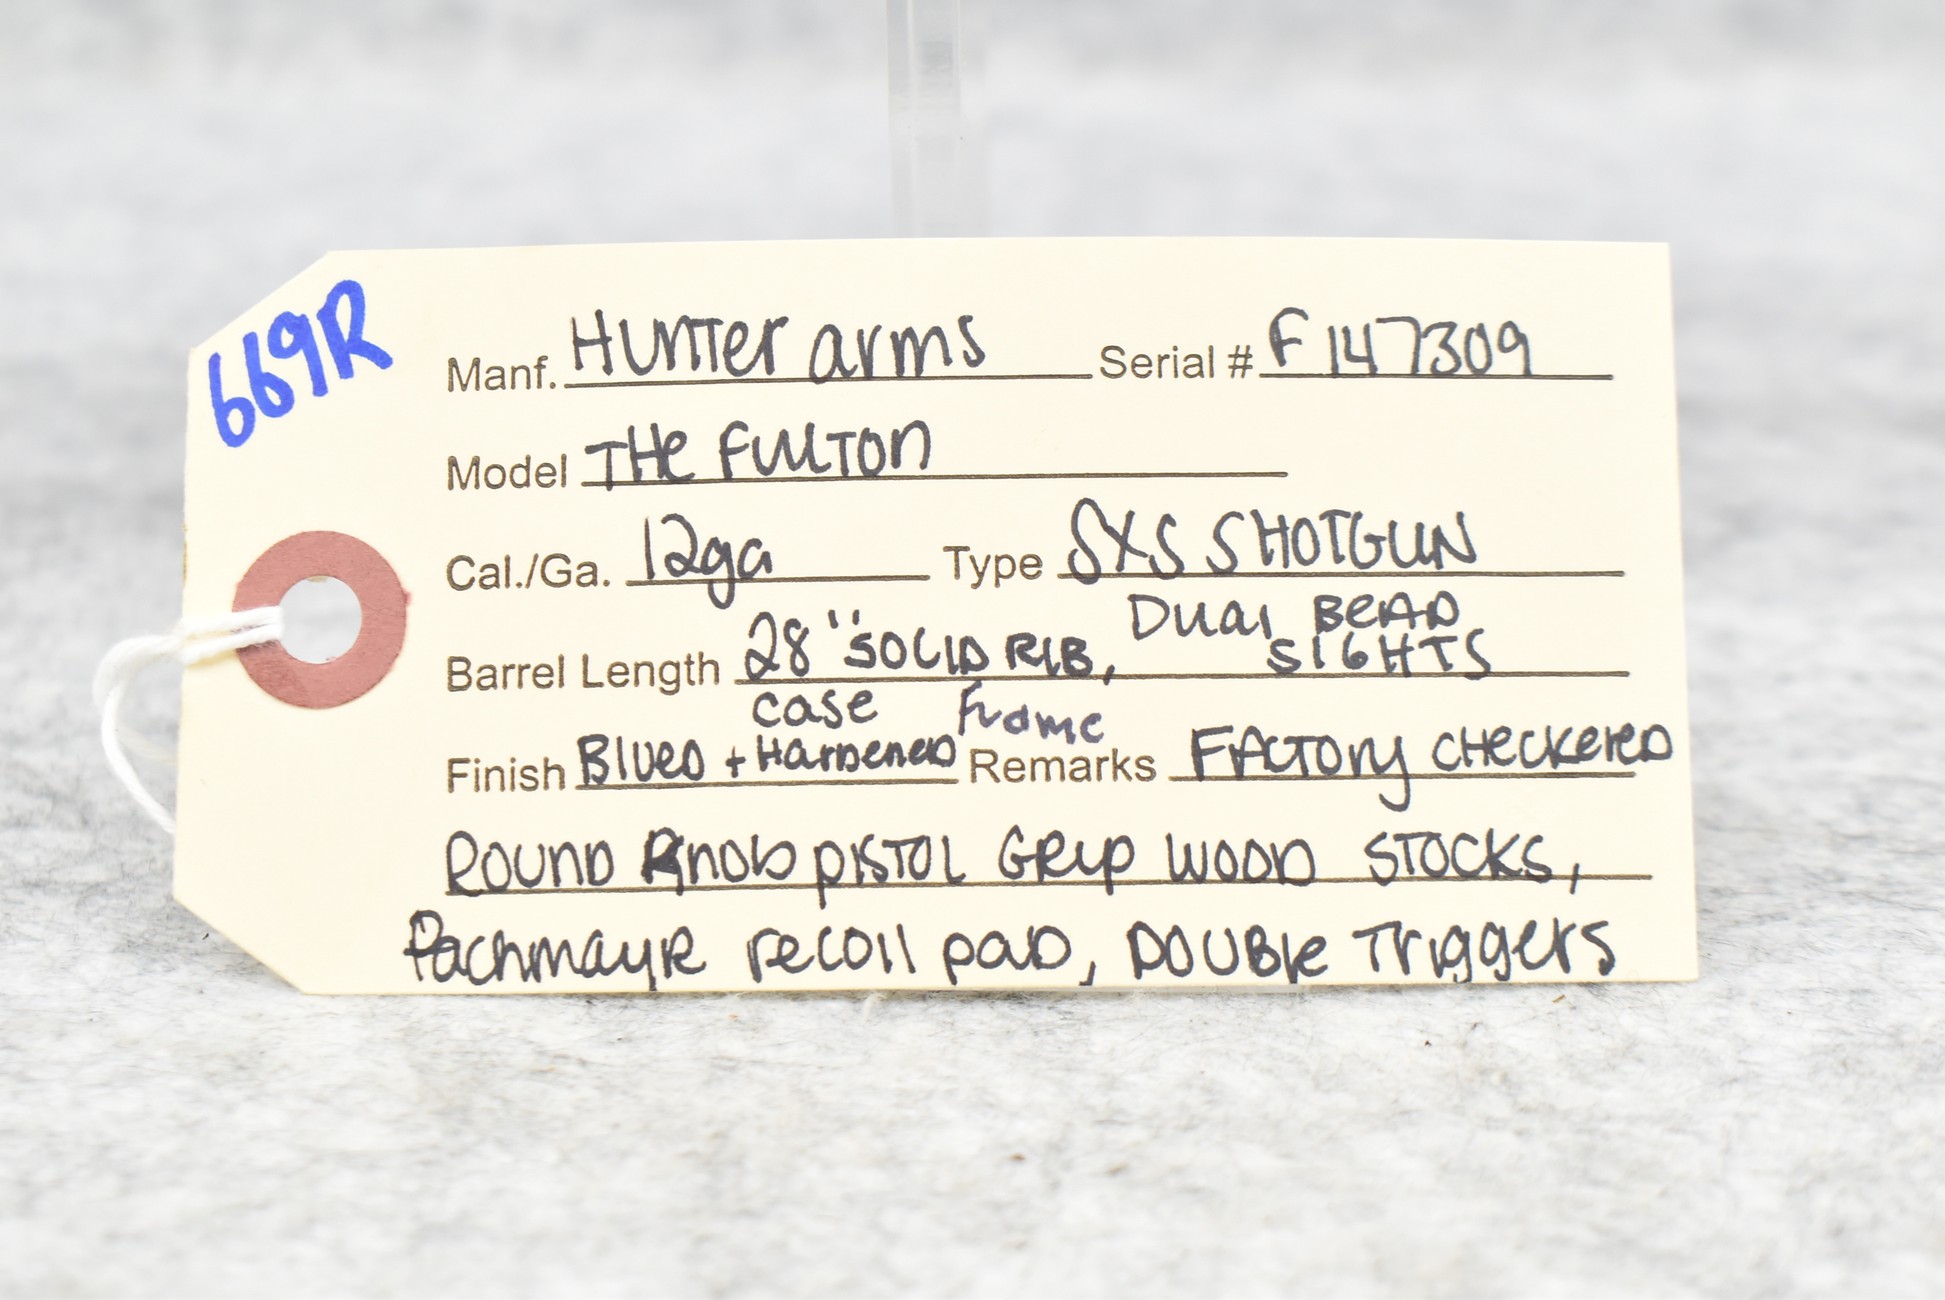 669R
Manf. HUNTER arms Serial # F147309
Model THe FULTON
Cal./Ga. 12ga Type SXS SHOTGUN
Barrel Length 28" SOLID RIB, Dual BEAD SIGHTS
case frame
Finish Blued + Hardened Remarks Factory CHecKered
ROUND Knob pisTOL GRip WOOD STOCKS,
Pachmayr recoil pad, DOUBle Triggers